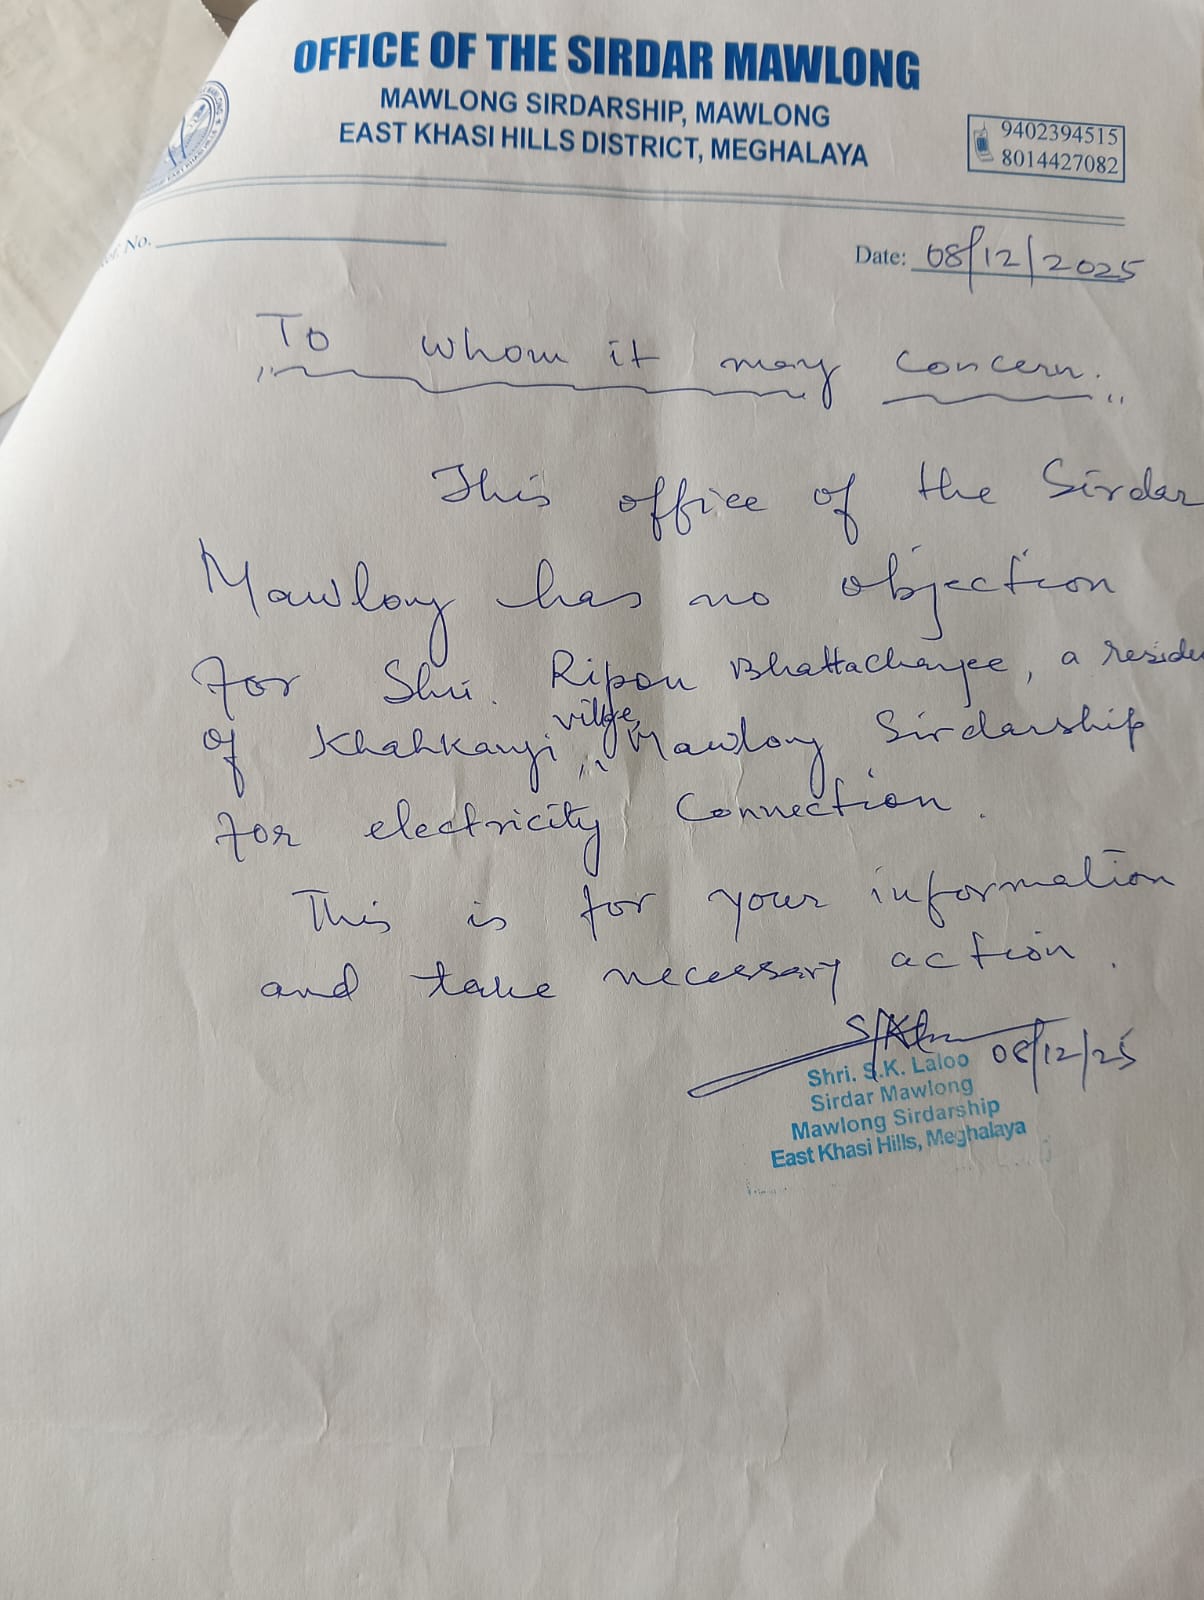 OFFICE OF THE SIRDAR MAWLONG
MAWLONG SIRDARSHIP, MAWLONG
EAST KHASI HILLS DISTRICT, MEGHALAYA
9402394515
8014427082
No.
Date: 08/12/2025
To whom it may concern.
This office of the Sirdar
Mawlong has no objection
for Shri. Ripon Bhattacharjee, a reside
of Khahkanji village, Mawlong Sirdarship
for electricity connection.
This is for your information
and take necessary action.
08/12/25
Shri. S.K. Laloo
Sirdar Mawlong
Mawlong Sirdarship
East Khasi Hills, Meghalaya